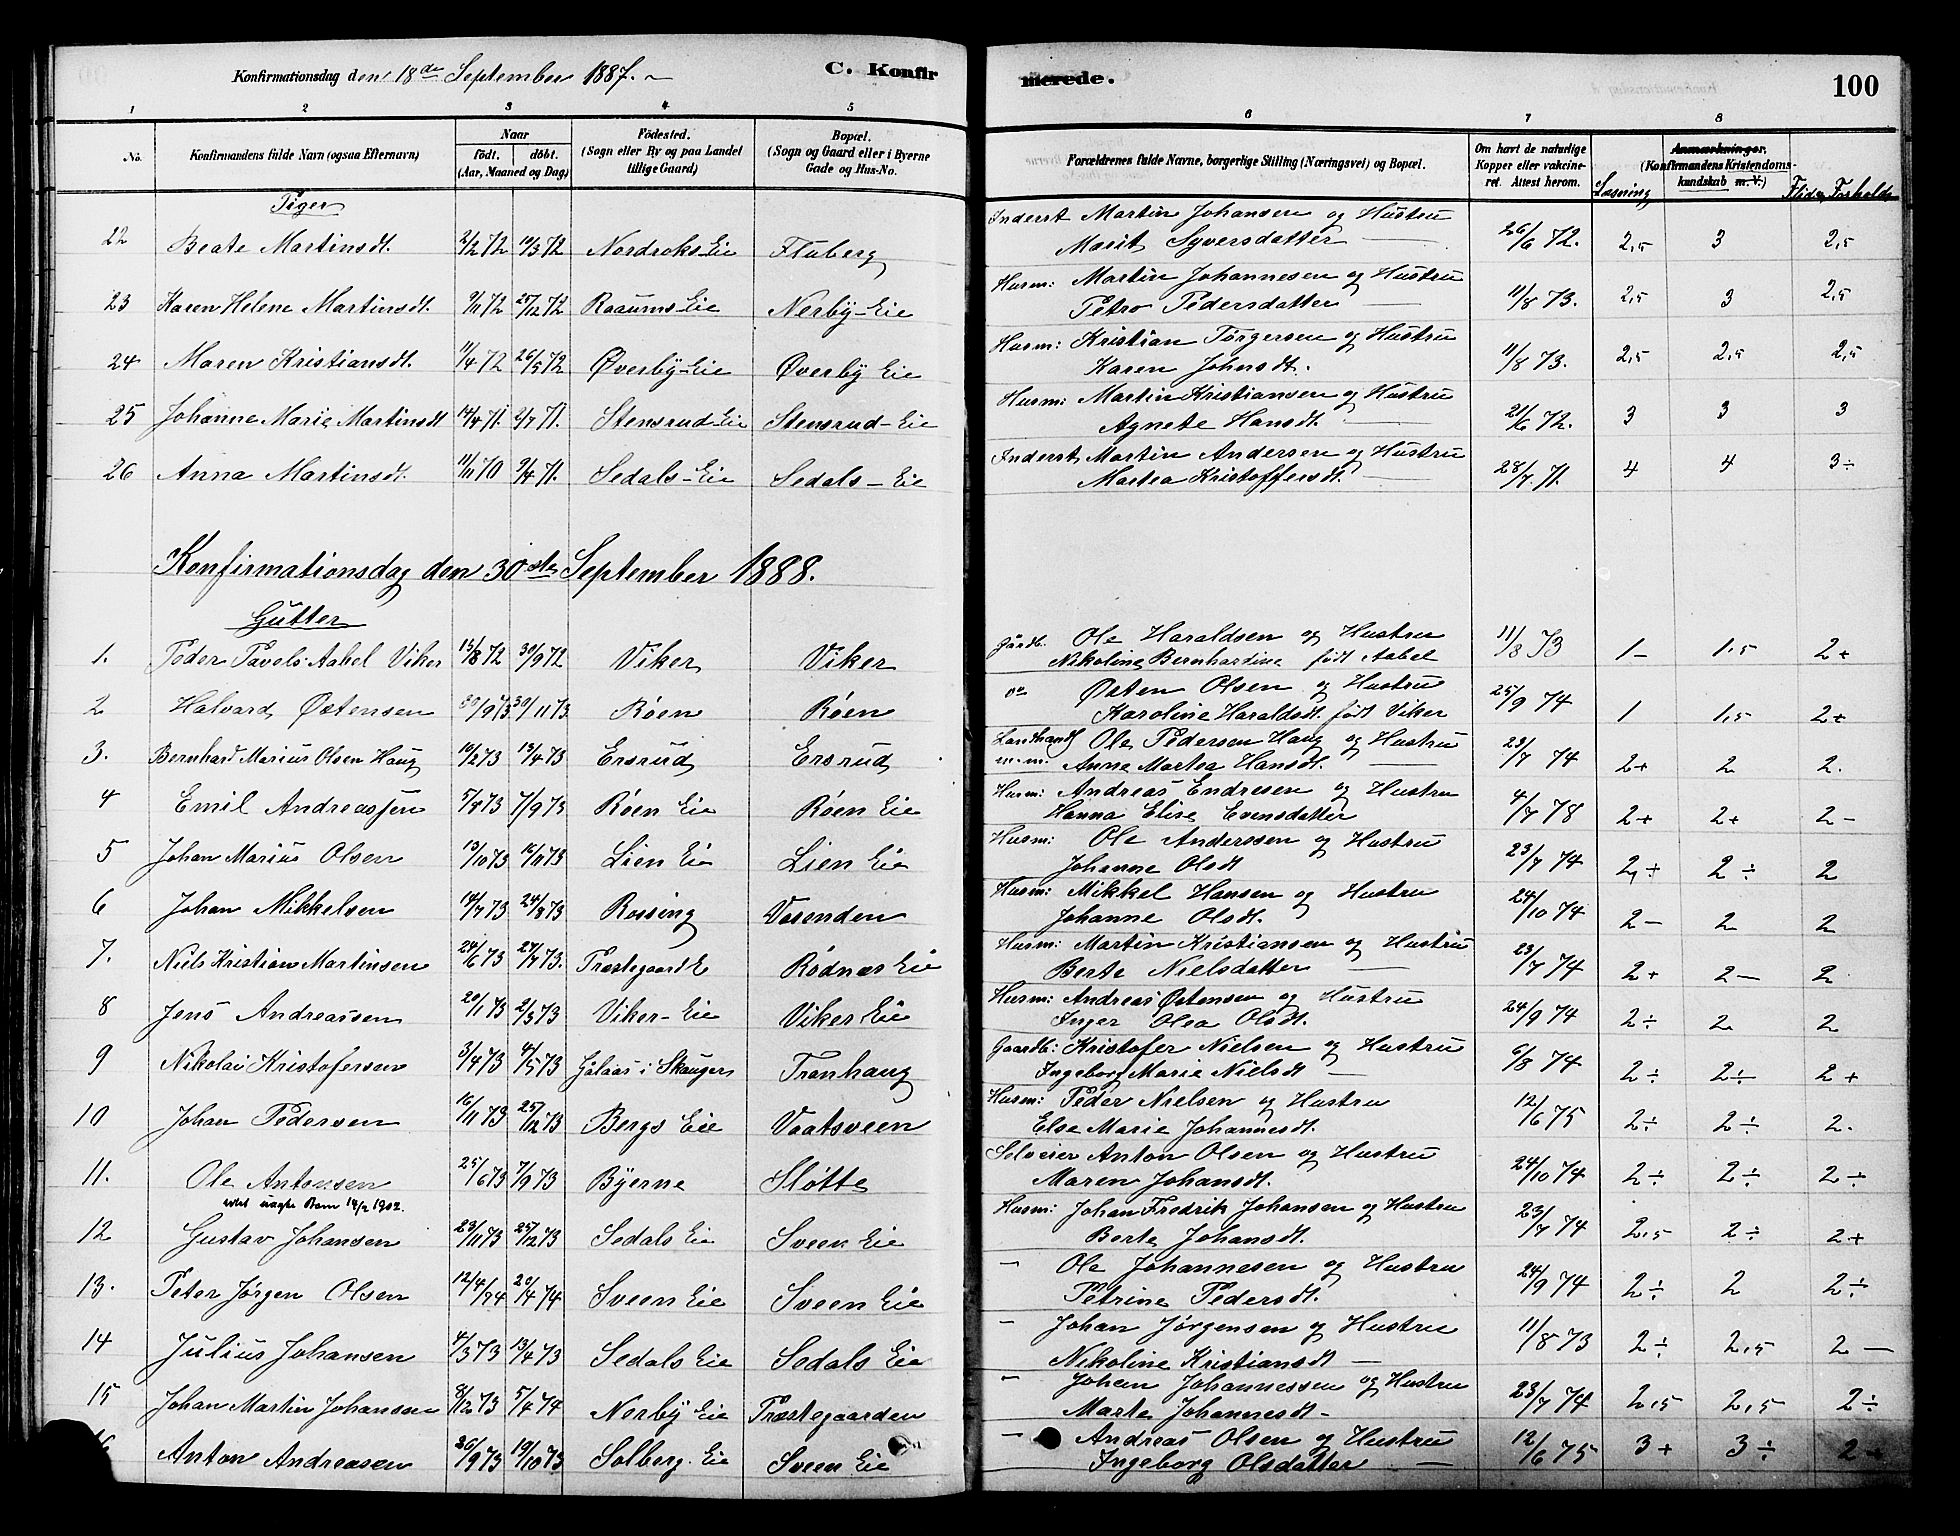 Konfirmationsdag den 18de September 1887. C. Konfirmerede. 100
1 2 3 4 5 6 7 8
No. Konfirmandens fulde Navn (ogsaa Efternavn) Naar födt. döbt. (Aar, Maaned og Dag) Födested. (Sogn eller By og paa Landet tillige Gaard) Bopæl. (Sogn og Gaard eller i Byerne Gade og Hus-No. Forældrenes fulde Navne, borgerlige Stilling (Næringsvei) og Bopæl. Om havt de naturlige Kopper eller vakcineret. Attest herom. Anmærkninger. (Konfirmandens Kristendomskundskab m. V.) Læsning Flid og Forhold
Piger
22 Beate Martinsdt. 2/2 72 10/3 72 Nordroks Eie Fluberg Inderst Martin Johansen og Hustru Marit Syversdatter 26/6 72. 2,5 3 2,5
23 Karen Helene Martinsdt. 9/11 72 25/12 72 Raaums Eie Nerby-Eie Husm: Martin Johannesen og Hustru Petro Pedersdatter 11/8 73. 2,5 3 2,5
24 Maren Kristiansdt. 11/4 72 26/5 72 Øverby-Eie Øverby Eie Husm: Kristian Törgersen og Hustru Karen Johnsdt. 11/8 73. 2,5 2,5 2,5
25 Johanne Marie Martinsdt 14/4 71. 2/7 71. Stensrud-Eie Stensrud-Eie Husm: Martin Kristiansen og Hustru Agnete Hansdt. 21/6 72. 3 3 3
26 Anna Martinsdt. 11/11 70 9/4 71. Sedals-Eie Sedals-Eie Inderst Martin Andersen og Hustru Martea Kristoffersdt. 28/7 71. 4 4 3÷
Konfirmationsdag den 30ste September 1888.
Gutter
1. Peder Pavels Aabel Viker 15/8 72 30/9 72 Viker Viker Gårdb. Ole Haraldsen og Hustru Nikoline Bernhardine født Aabel 11/8 73 1- 1,5 2+
2 Halvard Østensen 30/9 73 30/11 73 Røen Røen do Østen Olsen og Hustru Karoline Haraldsdt. født Viker 25/9 74 1 1,5 2+
3. Bernhard Marius Olsen Haug 10/2 73 13/4 73 Ersrud Ersrud Landhandl m.m. Ole Pedersen Haug og Hustru Anne Martea Hansdt. 23/7 74 2+ 2 2.
4 Emil Andreassen 5/8 73 7/9 73 Røen Eie Røen Eie Husm: Andreas Endresen og Hustru Hanna Elise Evensdatter 4/7 78 2+ 2+ 2-
5 Johan Marius Olsen 13/10 73 16/11 73 Lien Eie Lien Eie Husm: Ole Anderssen og Hustru Johanne Olsdt 23/7 74 2÷ 2÷ 2
6 Johan Mikkelsen 14/7 73 24/8 73 Rossing Vosenden Husm: Mikkel Hansen og Hustru Johanne Olsdt. 24/10 74 2- 2 2
7. Niels Kristian Martinsen 24/6 73 27/7 73. Præstegaard E Rødnæs Eie Husm: Martin Kristiansen og Hustru Berte Nielsdatter 23/7 74 2+ 2- 2
8 Jens Andreassen 20/1 73 2/3 73 Viker-Eie Viker Eie Husm: Andreas Østensen og Hustru Inger Olea Olsdt. 24/9 74 2÷ 2 2
9 Nikolai Kristofersen 3/4 73 4/5 73 Gålaas i Skauger Tranhaug Gaardb: Kristofer Nielsen og Hustru Ingeborg Marie Nielsdt 6/8 74 2÷ 2÷ 2+
10 Johan Pedersen 16/11 73 25/12 73 Bergs Eie Vaatsveen Husm: Peder Nielsen og Hustru Else Marie Johannesdt. 12/6 75 2÷ 2÷ 2.
11. Ole Antonsen 25/6 73 7/9 73 Byerne Sløtte Selveier Anton Olsen og Hustru Maren Johansdt. 24/10 74 2÷ 2÷ 2÷
14/2 1902.
12 Gustav Johansen 23/11 73 25/12 73 Sedals Eie Sveen Eie Husm: Johan Fredrik Johansen og Hustru Berte Johansdt. 23/7 74 2,5 2÷ 2+
13. Peter Jørgen Olsen 12/4/74 20/4 74 Sveen Eie Sveen Eie – Ole Johannesen og Hustru Petrine Pedersdt. 24/9 74 2÷ 2 2÷
14 Julius Johansen 4/3 73 13/4 73 Sedals Eie Sedals Eie – Johan Jørgensen og Hustru Nikoline Kristiansdt 11/8 73 2÷ 2,5 2-
15 Johan Martin Johansen 8/12 73 5/4 74 Nerby Eie Præstegaarden " Johan Johannessen og Hustru Marte Johannesdt- 23/7 74 2,5 2,5 2÷
16 Anton Andreasen 26/9 73 19/10 73 Solberg-Eie Sveen Eie – Andreas Olsen og Hustru Ingeborg Olsdatter 12/6 75 3+ 3÷ 2+